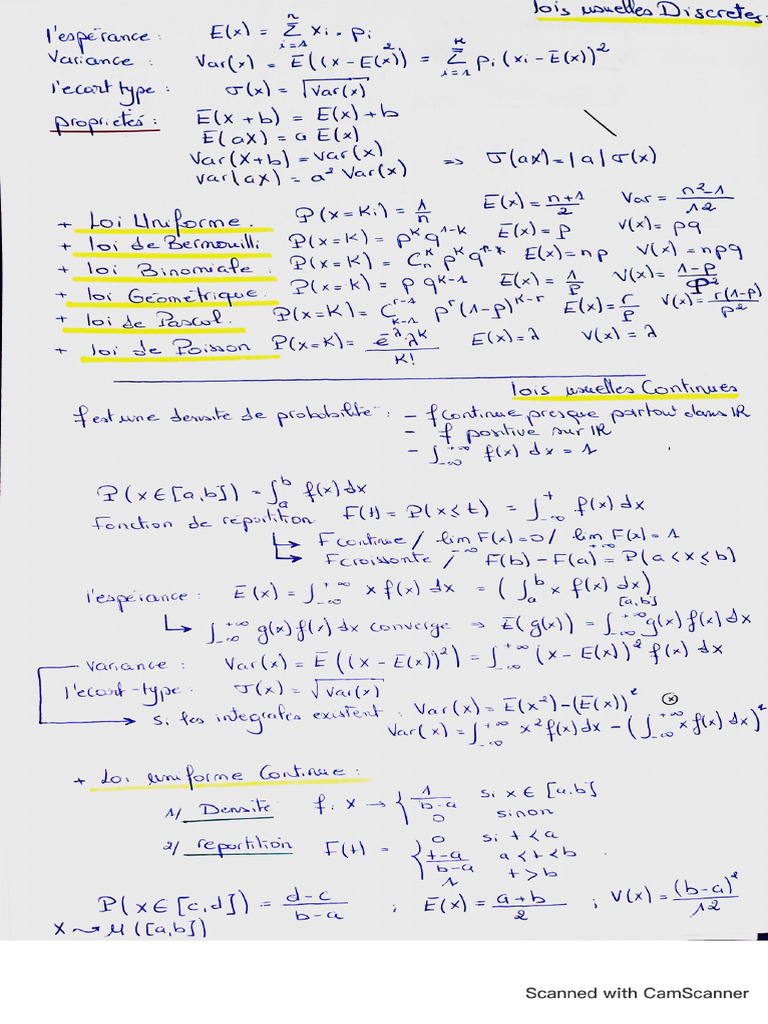 lois usuelles Discretes.
l'espérance : E(x) = Σ_{i=1}^{n} xi . pi
Variance : Var(x) = E((x - E(x))² = Σ_{i=1}^{n} pi (xi - E(x))²
l'ecart type : σ(x) = √Var(x)
propriétés : E(x + b) = E(x) + b
E(ax) = a E(x)
Var(x+b) = Var(x) ⇒ σ(ax) = |a| σ(x)
Var(ax) = a² Var(x)
+ Loi Uniforme. P(x = Ki) = 1/n E(x) = (n+1)/2 Var = (n²-1)/12
+ loi de Bernouilli P(x=K) = p^K q^{1-K} E(x) = p V(x) = pq
+ loi Binomiale : P(x=K) = C_n^K p^K q^{n-K} E(x) = np V(x) = npq
+ loi Géométrique. P(x=K) = p q^{K-1} E(x) = 1/p V(x) = (1-p)/p²
+ loi de Pascal. P(x=K) = C_{K-1}^{r-1} p^r (1-p)^{K-r} E(x) = r/p V(x) = r(1-p)/p²
+ loi de Poisson P(x=K) = e^{-λ} λ^K / K! E(x) = λ V(x) = λ
lois usuelles Continues
f est une densité de probabilité : - f continue presque partout dans IR
- f positive sur IR
- ∫_{-∞}^{+∞} f(x) dx = 1
P(x ∈ [a,b]) = ∫_a^b f(x) dx
Fonction de répartition F(t) = P(x ≤ t) = ∫_{-∞}^{t} f(x) dx
↳ F continue / lim_{-∞} F(x) = 0 / lim_{+∞} F(x) = 1
↳ F croissante / F(b) - F(a) = P(a < x ≤ b)
l'espérance : E(x) = ∫_{-∞}^{+∞} x f(x) dx = (∫_a^b x f(x) dx) [a,b]
↳ ∫_{-∞}^{+∞} g(x) f(x) dx converge ⇒ E(g(x)) = ∫_{-∞}^{+∞} g(x) f(x) dx
Variance : Var(x) = E((x - E(x))²) = ∫_{-∞}^{+∞} (x - E(x))² f(x) dx
l'ecart-type : σ(x) = √Var(x)
→ Si les integrales existent : Var(x) = E(x²) - (E(x))² ⊗
Var(x) = ∫_{-∞}^{+∞} x² f(x) dx - (∫_{-∞}^{+∞} x f(x) dx)²
+ Loi uniforme Continue :
1/ Densité f : x → { 1/(b-a) si x ∈ [a,b]
0 sinon
2/ repartition F(t) = { 0 si t < a
(t-a)/(b-a) a < t < b
1 t > b
P(x ∈ [c,d]) = (d-c)/(b-a) ; E(x) = (a+b)/2 ; V(x) = (b-a)²/12
X ⤳ U([a,b])
Scanned with CamScanner